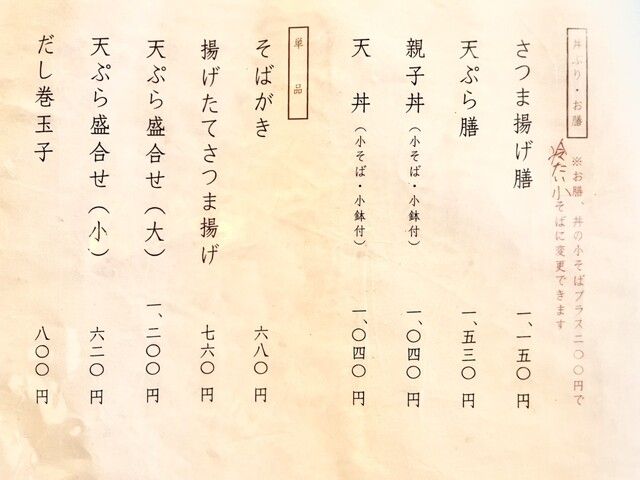 丼ぶり・お膳
※お膳、丼の小そばプラス二〇〇円で
冷たい小そばに変更できます
さつま揚げ膳 一、一五〇円
天ぷら膳 一、五三〇円
親子丼(小そば・小鉢付) 一、〇四〇円
天丼(小そば・小鉢付) 一、〇四〇円
単品
そばがき 六八〇円
揚げたてさつま揚げ 七六〇円
天ぷら盛合せ(大) 一、二〇〇円
天ぷら盛合せ(小) 六二〇円
だし巻玉子 八〇〇円